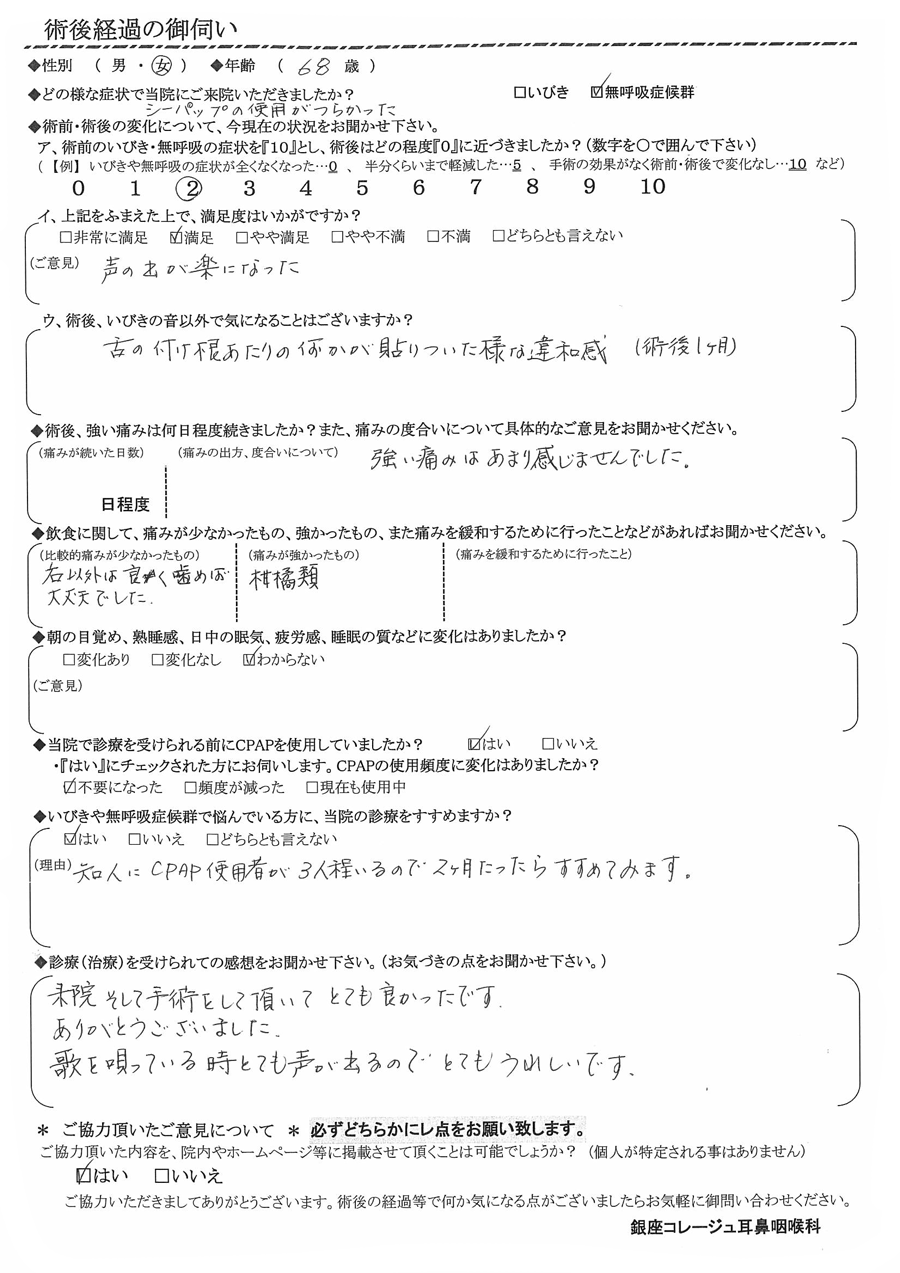 術後経過の御伺い
◆性別 ( 男 ・ 女 ) ◆年齢 ( 68 歳 )
◆どの様な症状で当院にご来院いただきましたか? □いびき ☑無呼吸症候群
シーパップの使用がつらかった
◆術前・術後の変化について、今現在の状況をお聞かせ下さい。
ア、術前のいびき・無呼吸の症状を『10』とし、術後はどの程度『0』に近づきましたか?(数字を○で囲んで下さい)
(【例】 いびきや無呼吸の症状が全くなくなった…0 、 半分くらいまで軽減した…5 、 手術の効果がなく術前・術後で変化なし…10 など)
0 1 2 3 4 5 6 7 8 9 10
イ、上記をふまえた上で、満足度はいかがですか?
□非常に満足 ☑満足 □やや満足 □やや不満 □不満 □どちらとも言えない
(ご意見) 声の出が楽になった
ウ、術後、いびきの音以外で気になることはございますか?
舌の付け根あたりの何かが貼りついた様な違和感 (術後1ヶ月)
◆術後、強い痛みは何日程度続きましたか?また、痛みの度合いについて具体的なご意見をお聞かせください。
(痛みが続いた日数) (痛みの出方、度合いについて) 強い痛みはあまり感じませんでした。
日程度
◆飲食に関して、痛みが少なかったもの、強かったもの、また痛みを緩和するために行ったことなどがあればお聞かせください。
(比較的痛みが少なかったもの) (痛みが強かったもの) (痛みを緩和するために行ったこと)
右以外は良く歯めば 柑橘類
大丈夫でした.
◆朝の目覚め、熟睡感、日中の眠気、疲労感、睡眠の質などに変化はありましたか?
□変化あり □変化なし ☑わからない
(ご意見)
◆当院で診療を受けられる前にCPAPを使用していましたか? ☑はい □いいえ
・『はい』にチェックされた方にお伺いします。CPAPの使用頻度に変化はありましたか?
☑不要になった □頻度が減った □現在も使用中
◆いびきや無呼吸症候群で悩んでいる方に、当院の診療をすすめますか?
☑はい □いいえ □どちらとも言えない
(理由) 知人にCPAP使用者が3人程いるので2ヶ月たったらすすめてみます。
◆診療(治療)を受けられての感想をお聞かせ下さい。(お気づきの点をお聞かせ下さい。)
来院そして手術をして頂いてとても良かったです.
ありがとうございました.
歌を唄っている時とても声が出るのでとてもうれしいです.
* ご協力頂いたご意見について * 必ずどちらかにレ点をお願い致します。
ご協力頂いた内容を、院内やホームページ等に掲載させて頂くことは可能でしょうか? (個人が特定される事はありません)
☑はい □いいえ
ご協力いただきましてありがとうございます。術後の経過等で何か気になる点がございましたらお気軽に御問い合わせください。
銀座コレージュ耳鼻咽喉科